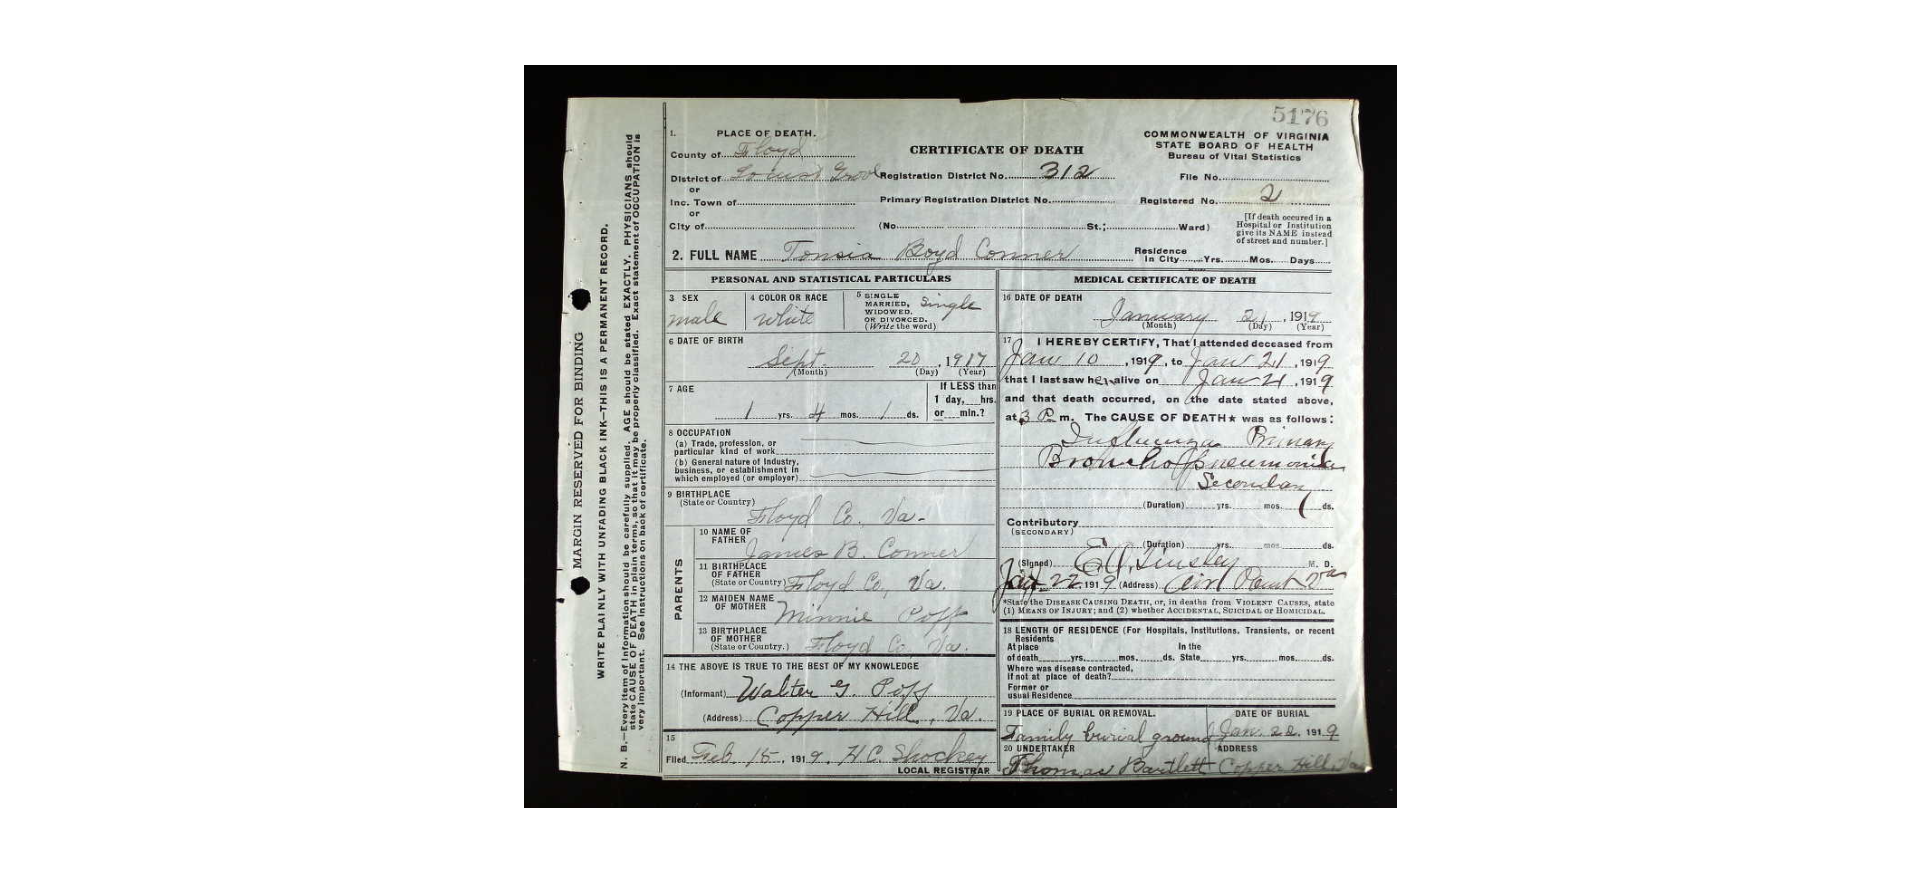 5176
1. PLACE OF DEATH.
County of Floyd
District of Locust Grove
or
Inc. Town of
or
City of
CERTIFICATE OF DEATH
Registration District No. 312
Primary Registration District No.
(No. St.; Ward)
COMMONWEALTH OF VIRGINIA
STATE BOARD OF HEALTH
Bureau of Vital Statistics
File No.
Registered No. 2
[If death occured in a
Hospital or Institution
give its NAME instead
of street and number.]
2. FULL NAME Boyd Conner
Residence
In City Yrs. Mos. Days
PERSONAL AND STATISTICAL PARTICULARS
3 SEX
male
4 COLOR OR RACE
White
5 SINGLE
MARRIED,
WIDOWED,
OR DIVORCED.
(Write the word)
Single
6 DATE OF BIRTH
Sept. 20, 1917
(Month) (Day) (Year)
7 AGE
1 yrs. 4 mos. 1 ds.
If LESS than
1 day, hrs.
or min.?
8 OCCUPATION
(a) Trade, profession, or
particular kind of work
(b) General nature of Industry,
business, or establishment in
which employed (or employer)
9 BIRTHPLACE
(State or Country)
Floyd Co. Va.
PARENTS
10 NAME OF
FATHER
James B. Conner
11 BIRTHPLACE
OF FATHER
(State or Country) Floyd Co, Va.
12 MAIDEN NAME
OF MOTHER
Minnie Poff
13 BIRTHPLACE
OF MOTHER
(State or Country.) Floyd Co. Va.
14 THE ABOVE IS TRUE TO THE BEST OF MY KNOWLEDGE
(Informant) Walter G. Poff
(Address) Copper Hill, Va.
15
Filed Feb. 15, 1919. H C. Shockey
LOCAL REGISTRAR
MEDICAL CERTIFICATE OF DEATH
16 DATE OF DEATH
January 21, 1919
(Month) (Day) (Year)
17 I HEREBY CERTIFY, That I attended deceased from
Jan 10, 1919, to Jan 21, 1919
that I last saw her alive on Jan 21, 1919
and that death occurred, on the date stated above,
at 3 P. m. The CAUSE OF DEATH★ was as follows:
Influenza Primary
Broncho Pneumonia
Secondary
(Duration) yrs. mos. ds.
Contributory
(SECONDARY)
(Duration) yrs. mos. ds.
(Signed) Tinsley M. D.
Jan 22 1919 (Address) Air Point Va
*State the DISEASE CAUSING DEATH, or, in deaths from VIOLENT CAUSES, state
(1) MEANS OF INJURY; and (2) whether ACCIDENTAL, SUICIDAL or HOMICIDAL.
18 LENGTH OF RESIDENCE (For Hospitals, Institutions, Transients, or recent
Residents
At place In the
of death yrs. mos. ds. State yrs. mos. ds.
Where was disease contracted,
if not at place of death?
Former or
usual Residence
19 PLACE OF BURIAL OR REMOVAL. DATE OF BURIAL
Family burial ground Jan. 22. 1919
20 UNDERTAKER ADDRESS
Thomas Bartlett Copper Hill, Va
MARGIN RESERVED FOR BINDING
WRITE PLAINLY WITH UNFADING BLACK INK—THIS IS A PERMANENT RECORD.
N. B.—Every item of information should be carefully supplied. AGE should be stated EXACTLY. PHYSICIANS should
state CAUSE OF DEATH in plain terms, so that it may be properly classified. Exact statement of OCCUPATION is
very important. See instructions on back of certificate.